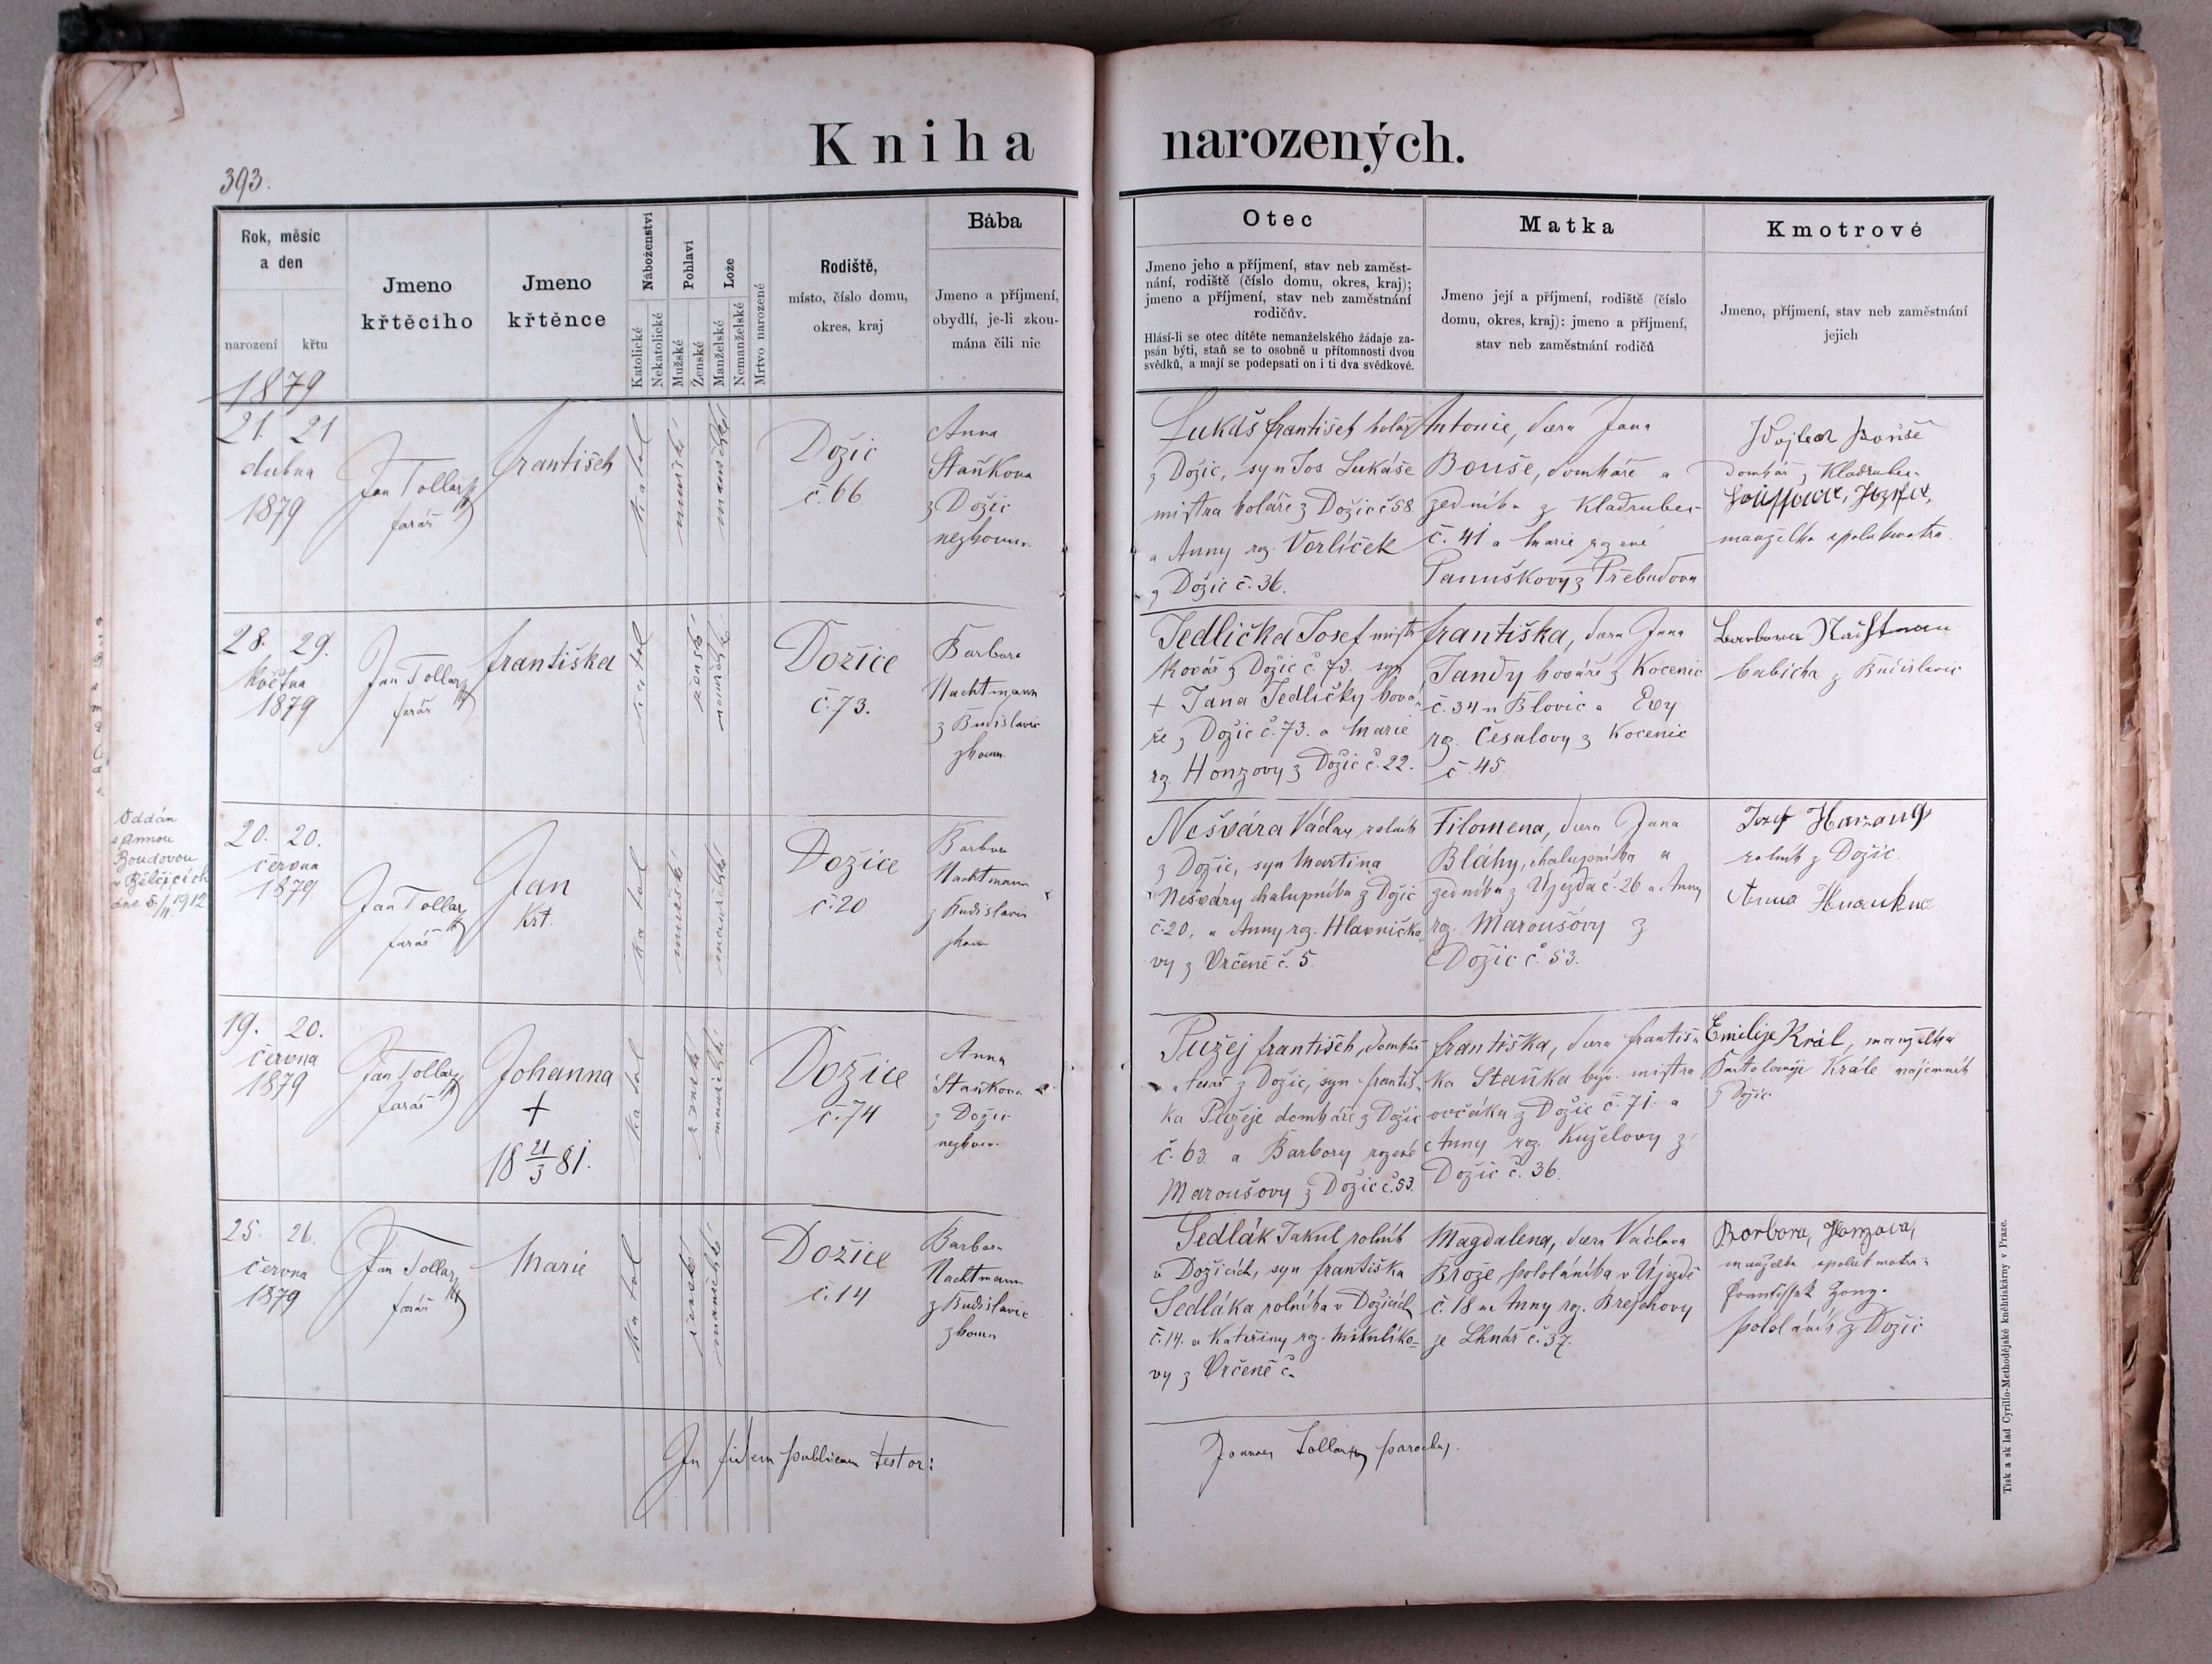 Kniha narozených.
393.
Rok, měsíc
a den
narození křtu
Jmeno
křtěcího
Jmeno
křtěnce
Náboženství
Katolické
Nekatolické
Pohlaví
Mužské
Ženské
Lože
Manželské
Nemanželské
Mrtvo narozené
Rodiště,
místo, číslo domu,
okres, kraj
Bába
Jmeno a příjmení,
obydlí, je-li zkou-
mána čili nic
Otec
Jmeno jeho a příjmení, stav neb zaměst-
nání, rodiště (číslo domu, okres, kraj);
jmeno a příjmení, stav neb zaměstnání
rodičův.
Hlásí-li se otec dítěte nemanželského žádaje za-
psán býti, staň se to osobně u přítomnosti dvou
svědků, a mají se podepsati on i ti dva svědkové.
Matka
Jmeno její a příjmení, rodiště (číslo
domu, okres, kraj): jmeno a příjmení,
stav neb zaměstnání rodičů
Kmotrové
Jmeno, příjmení, stav neb zaměstnání
jejich
1879
21. 21
dubna
1879
Jan Tollar
farář
František
katol
mužské
manželské
Dožic
č. 66
Anna
Staňkova
z Dožic
nezkoum.
Lukáš František kolář
z Dožic, syn Jos Lukáše
mistra koláře z Dožic č 58.
a Anny roz. Vorlíček
z Dožic č. 36.
Antonie, dcera Jana
Bouše, domkáře a
zedníka z Kladrubec
č. 41 a Marie rozené
Panuškovy z Přebudova
domkář z Kladrubec
manželka spolukmotra.
28. 29.
května
1879
Jan Tollar
farář
Františka
katol
ženské
manželské
Dožice
č. 73.
Barbora
Nachtmann
z Budislavic
zkoum.
Jedlička Josef mistr
kovář z Dožic č 73. syn
+ Jana Jedličky ková-
ře z Dožic č. 73. a Marie
roz. Honzovy z Dožic č. 22.
Františka, dcera Jana
Jandy kováře z Kocenic
č. 34 u Blovic a Evy
roz. Česalovy z Kocenic
č. 45
Barbora Nachtman
babička z Budislavic
Oddán
s Annou
Boudovou
v Bělčicích
dne 5./11. 1912
20. 20.
června
1879
Jan Tollar
farář
Jan
Krt.
katol
mužské
manželské
Dožice
č. 20
Barbora
Nachtmann
z Budislavic
zkoum
Nešvára Václav rolník
z Dožic, syn Martina
Nešváry chalupníka z Dožic
č. 20. a Anny roz. Hlavničko-
vy z Vrčeně č. 5.
Filomena, dcera Jana
Bláhy, chalupníka a
zedníka z Újezda č. 26 a Anny
roz. Maroušovy z
Dožic č. 53.
rolník z Dožic.
Anna
19. 20.
června
1879
Jan Tollar
farář
Johanna
+
18 21/3 81.
katol
ženské
manželské
Dožice
č. 74
Anna
Staňkova
z Dožic
nezkoum.
Pužej František, domkář
a tesař z Dožic, syn Františ-
ka Pužeje domkáře z Dožic
č. 63. a Barbory rozené
Maroušovy z Dožic č. 53.
Františka, dcera Františ-
ka Staňka býv. mistra
ovčáka z Dožic č. 71. a
Anny roz. Kuželovy z
Dožic č. 36.
Emilije Král, manželka
Bartoloměje Krále nájemník
z Dožic
25. 26.
června
1879
Jan Tollar
farář
Marie
katol
ženské
manželské
Dožice
č. 14
Barbora
Nachtmann
z Budislavic
zkoum
Sedlák Jakub rolník
v Dožicích, syn Františka
Sedláka rolníka v Dožicích
č. 14. a Kateřiny roz. Mikuliko-
vy z Vrčeně č.
Magdalena, dcera Václava
Brože, pololáníka v Újezdě
č. 18 a Anny roz. Brejchovy
ze Lhnář č. 37.
Barbora, Honzova,
manželka spolukmotra
František Honz.
pololáník z Dožic
In fidem publicam testor:
Joannes Tollar parochus.
Tisk a sklad Cyrillo-Methodějské knihtiskárny v Praze.